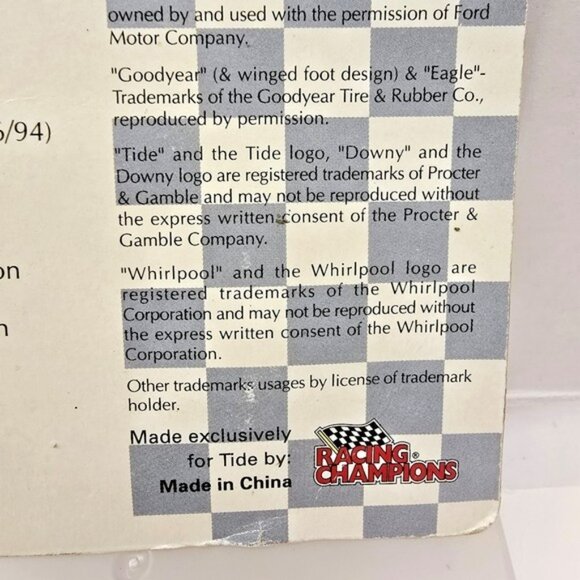 owned by and used with the permission of Ford
Motor Company.
"Goodyear" (& winged foot design) & "Eagle"-
Trademarks of the Goodyear Tire & Rubber Co.,
reproduced by permission.
/94)
"Tide" and the Tide logo, "Downy" and the
Downy logo are registered trademarks of Procter
& Gamble and may not be reproduced without
the express written consent of the Procter &
Gamble Company.
on
"Whirlpool" and the Whirlpool logo are
registered trademarks of the Whirlpool
Corporation and may not be reproduced without
n
the express written consent of the Whirlpool
Corporation.
Other trademarks usages by license of trademark
holder.
Made exclusively
for Tide by:
Made in China
RACING
CHAMPIONS®